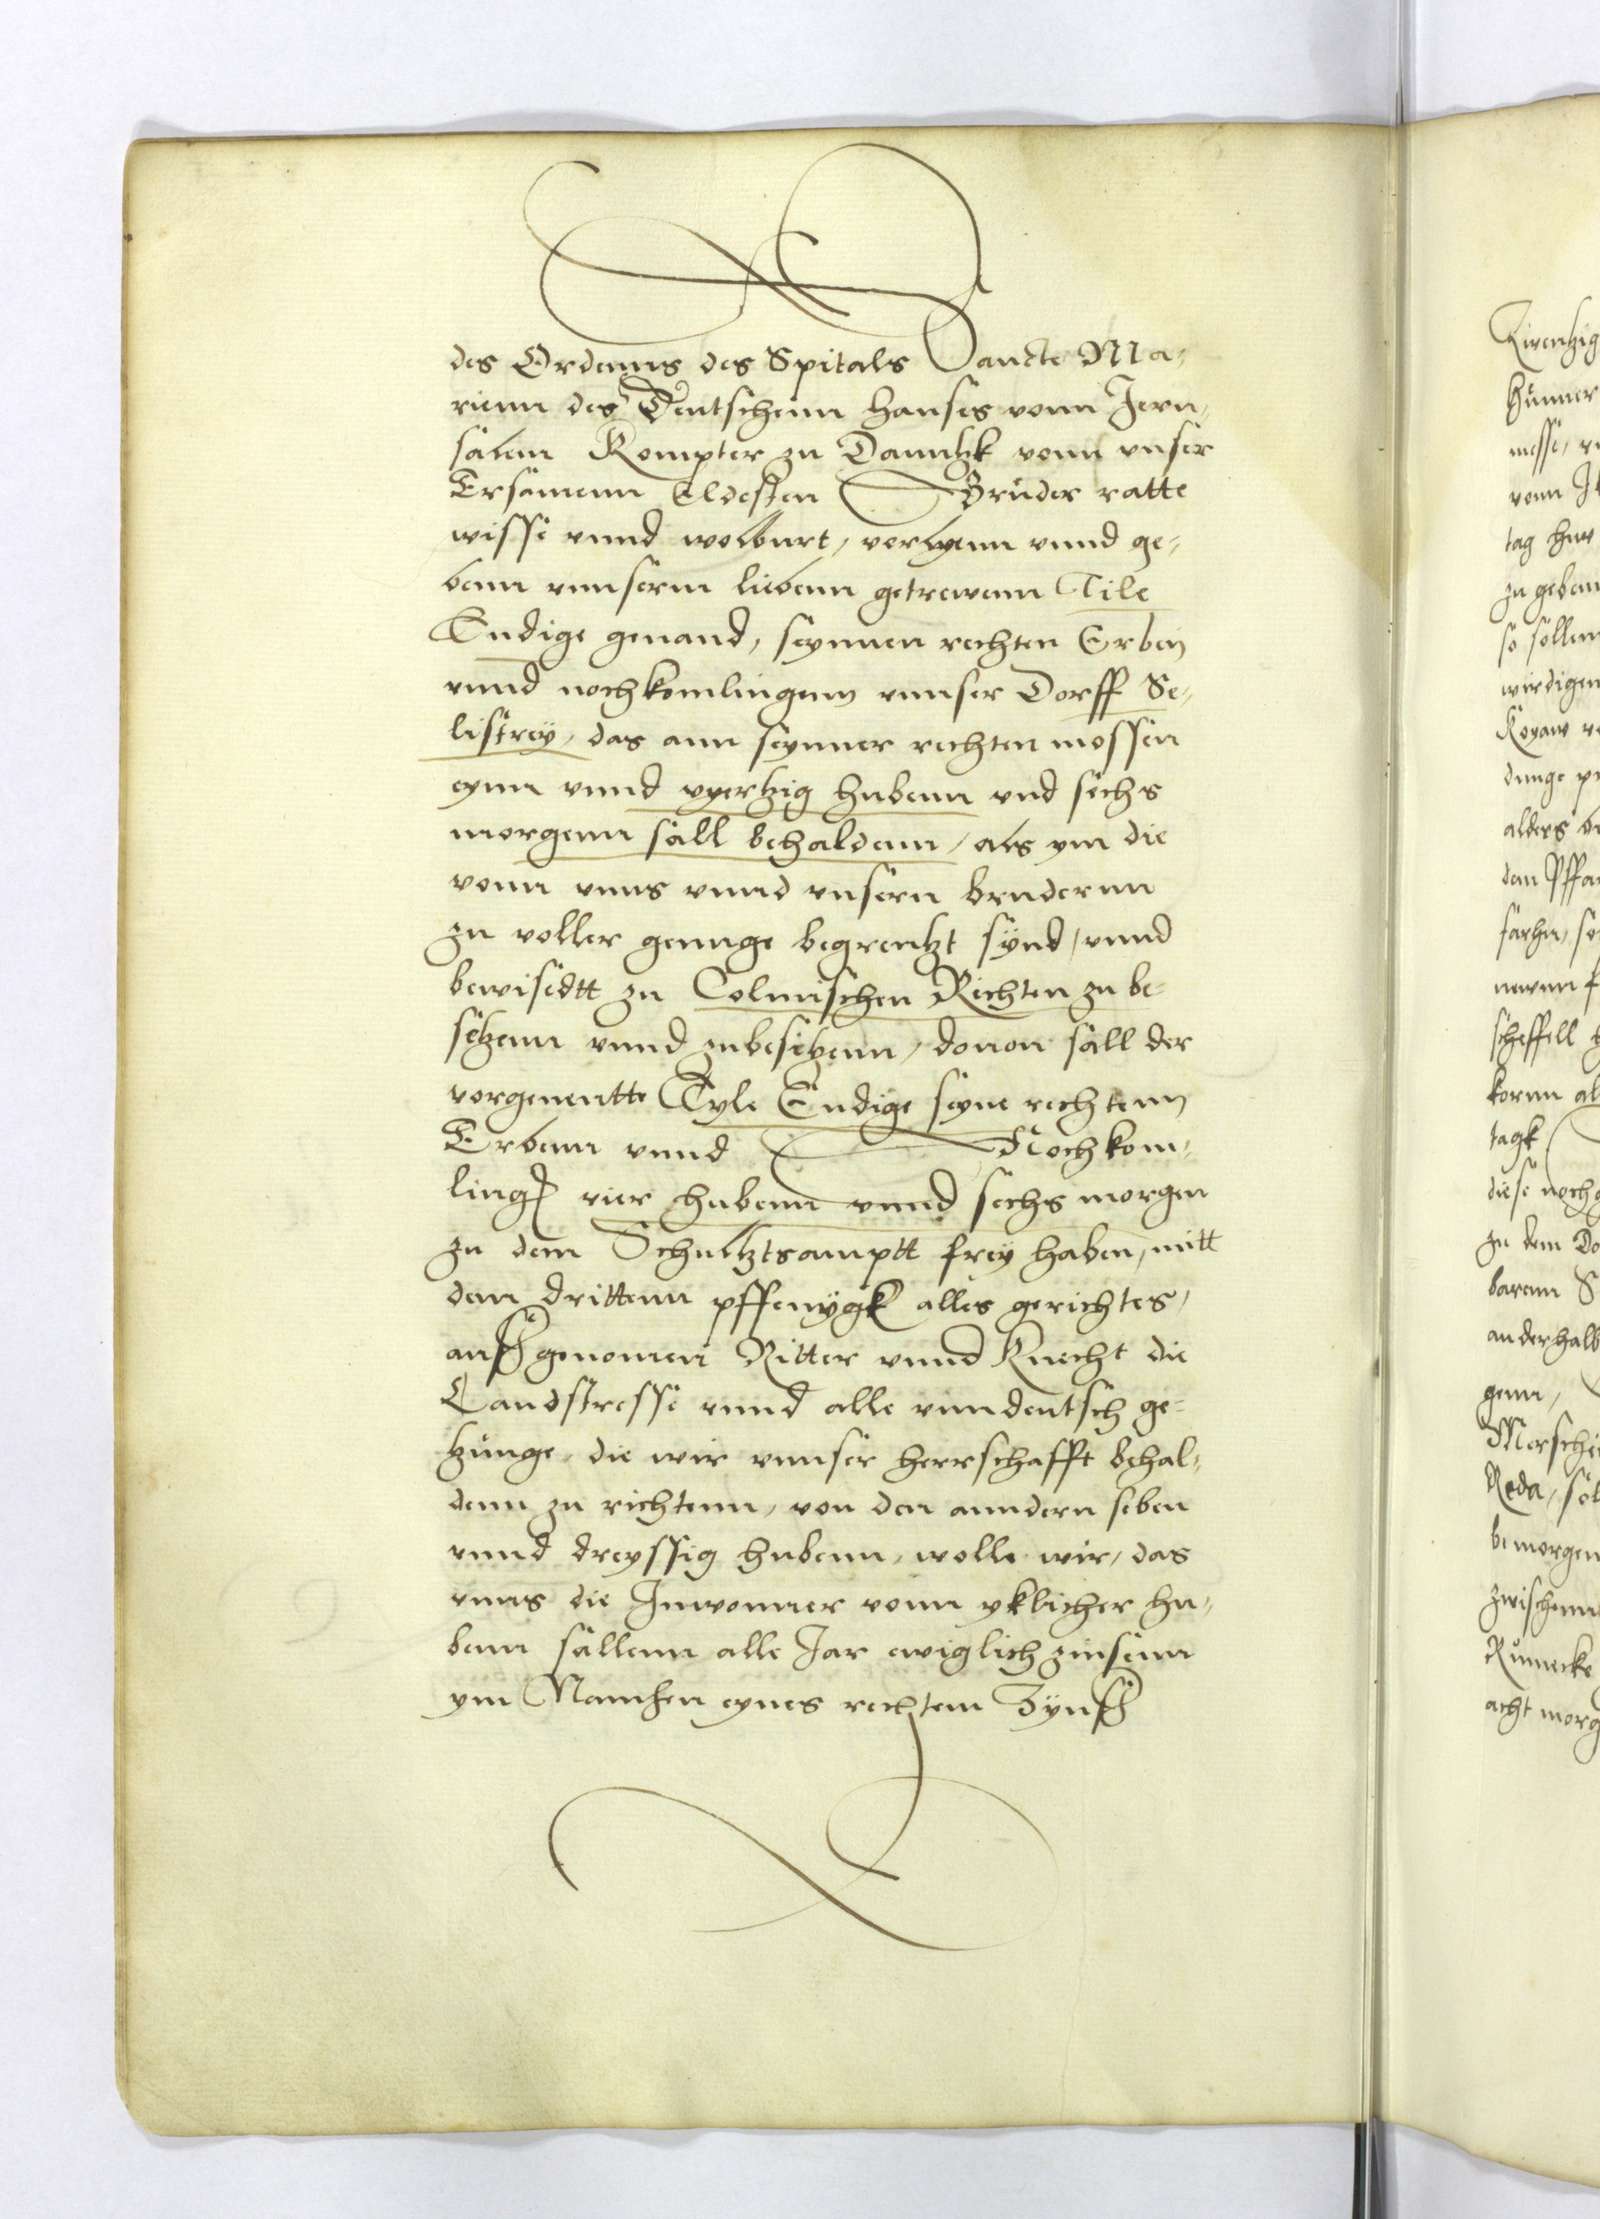 des Ordenns des Spitals Sancte Ma-
rienn des Deutschenn hauses vonn Jeru-
salem Kompter zu Danntzk vonn vnser
Ersamenn Eldesten Brüder ratte
wisse vnnd wolburt, vorleyenn vnnd ge-
benn vnnserm liebenn getrewenn Tile
Endige genand, seynnen rechten Erben
vnnd nochkomlingenn vnnser Dorff Se-
listrey, das ann seynner rechten mossen
eynn vnnd vyertzig hubenn vnd sechs
morgenn sall behaldenn, als ym die
vonn vnns vnnd vnsern brudernn
zu voller genuge begrentzt synd, vnnd
bewisedtt zu Colmischen Rechten zu be-
setzenn vnnd zubesitzenn, douon sall der
vorgenentte Tyle Endige seyne rechtenn
Erbenn vnnd Nochkom-
ling vier hubenn vnnd sechs morgen
zu dem Schultztsamptt frey haben, mitt
den drittenn pffenygk alles gerichtes,
ausgenomen Ritter vnnd Knecht die
Landstresse vnnd alle vnndeutsch ge-
tzunge, die wir vnnser herrschafft behal-
denn zu richtenn, von den anndern seben
vnnd dreyssig hubenn, wolle wir, das
vnns die Inwonner vonn yklicher hu-
benn sallenn alle Jar ewiglich zinsenn
ym Namhen eynes rechtem Zynß
hünner
messe,
vonn
tag
zu geben
so sollen
wirdigen
alders
scheffell
kornn
tagk
diese noch
zu dem Do
anderhalb
genn,
Reda, sol
bemorgen
zwischenn
Rumecke
acht morg